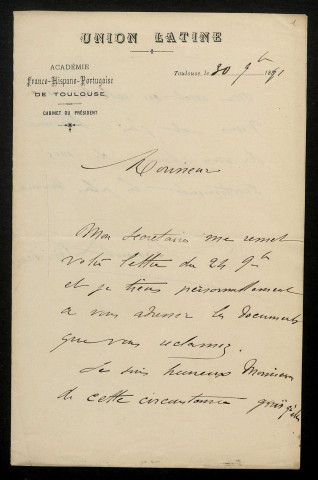 UNION LATINE
ACADÉMIE
Franco-Hispano-Portugaise
DE TOULOUSE
CABINET DU PRÉSIDENT
Toulouse, le 30 9bre 1891
Monsieur
Mon secrétaire me remet
votre lettre du 24 9bre
et je tiens personnellement
a vous adresser les documents
que vous reclamez.
Je suis heureux Monsieur
de cette circonstance